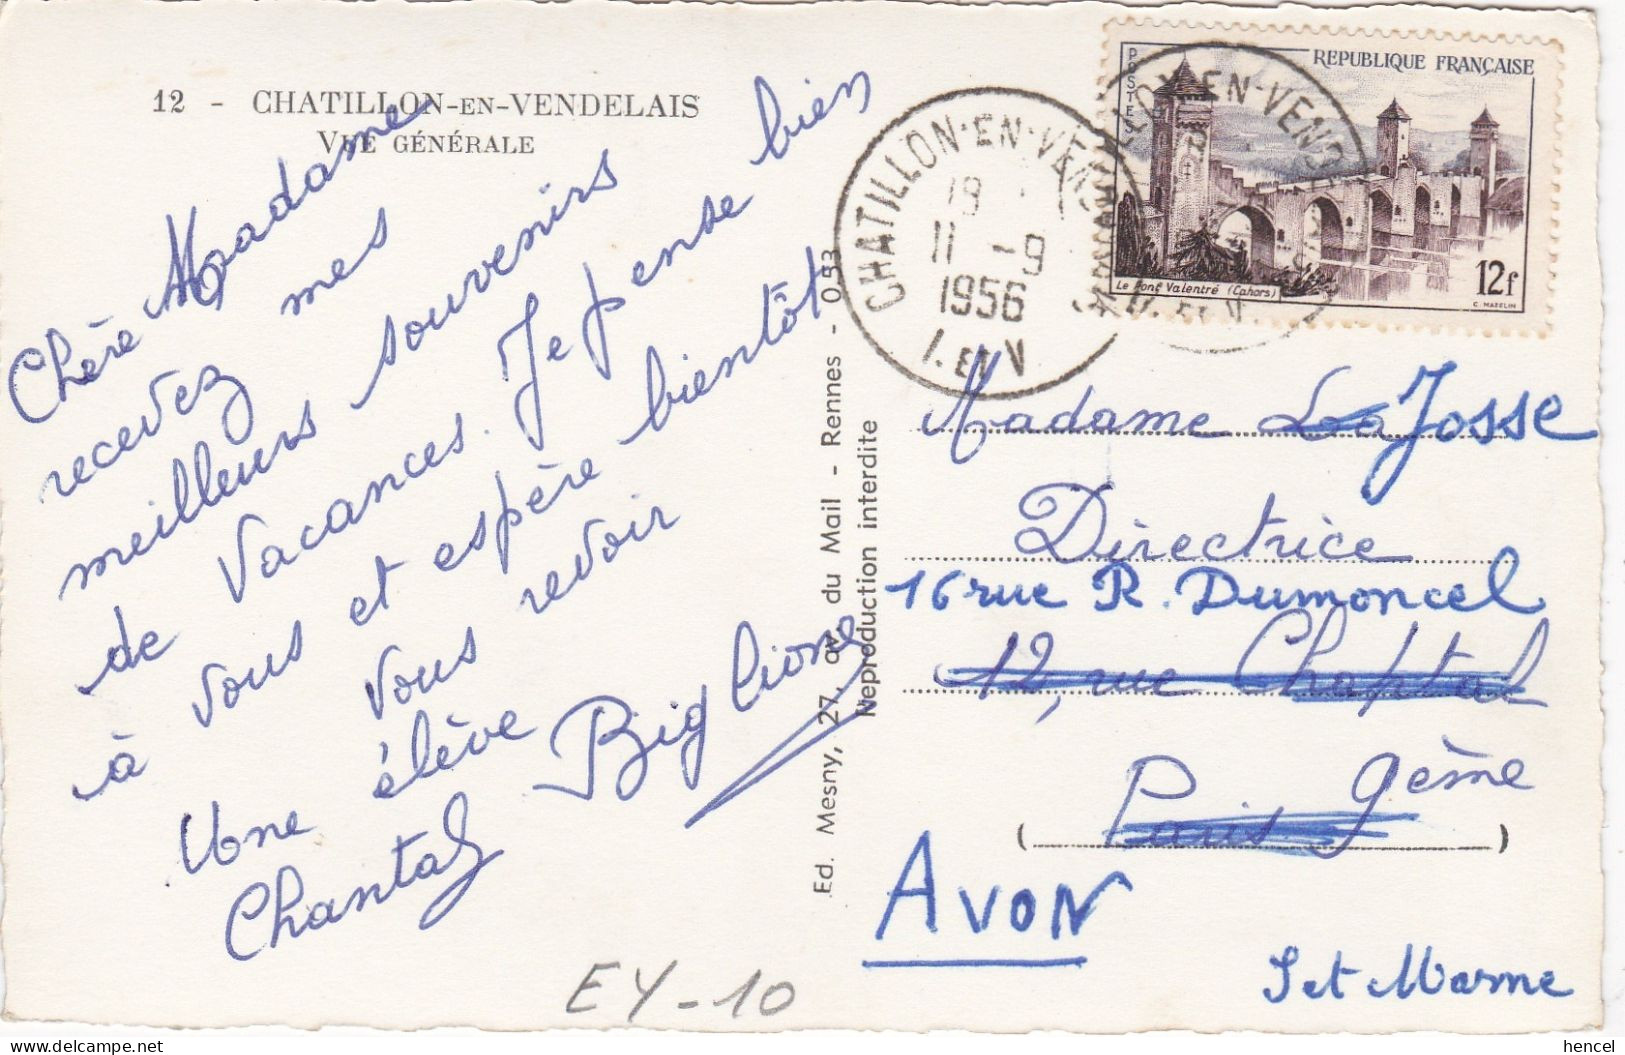 12 - CHATILLON-EN-VENDELAIS
VUE GÉNÉRALE
Chère Madame
recevez mes
meilleurs souvenirs
de vacances. Je pense bien
à vous et espère bientôt
vous revoir
Une élève
Chantal Biglione
Ed. Mesny, 27, av. du Mail - Rennes - 0.53
Reproduction interdite
CHATILLON-EN-VENDELAIS
18
11 -9
1956
I. ET V
POSTES
REPUBLIQUE FRANÇAISE
Le Pont Valentré (Cahors)
12f
C. MAZELIN
Madame La Josse
Directrice
16 rue R. Dumoncel
12, rue Chaptal
Paris 9ème
AVON
S et Marne
EY-10
hencel